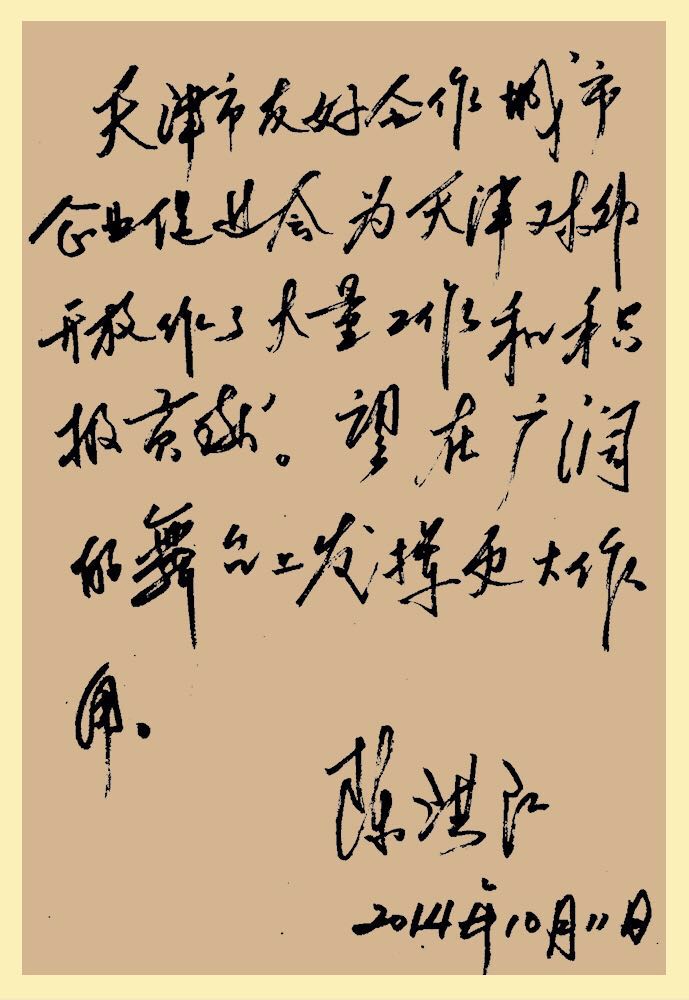 天津市友好合作城市
企业促进会为天津对外
开放作了大量工作和积
极贡献。望在广阔
的舞台上发挥更大作
用。
陈洪江
2014年10月11日